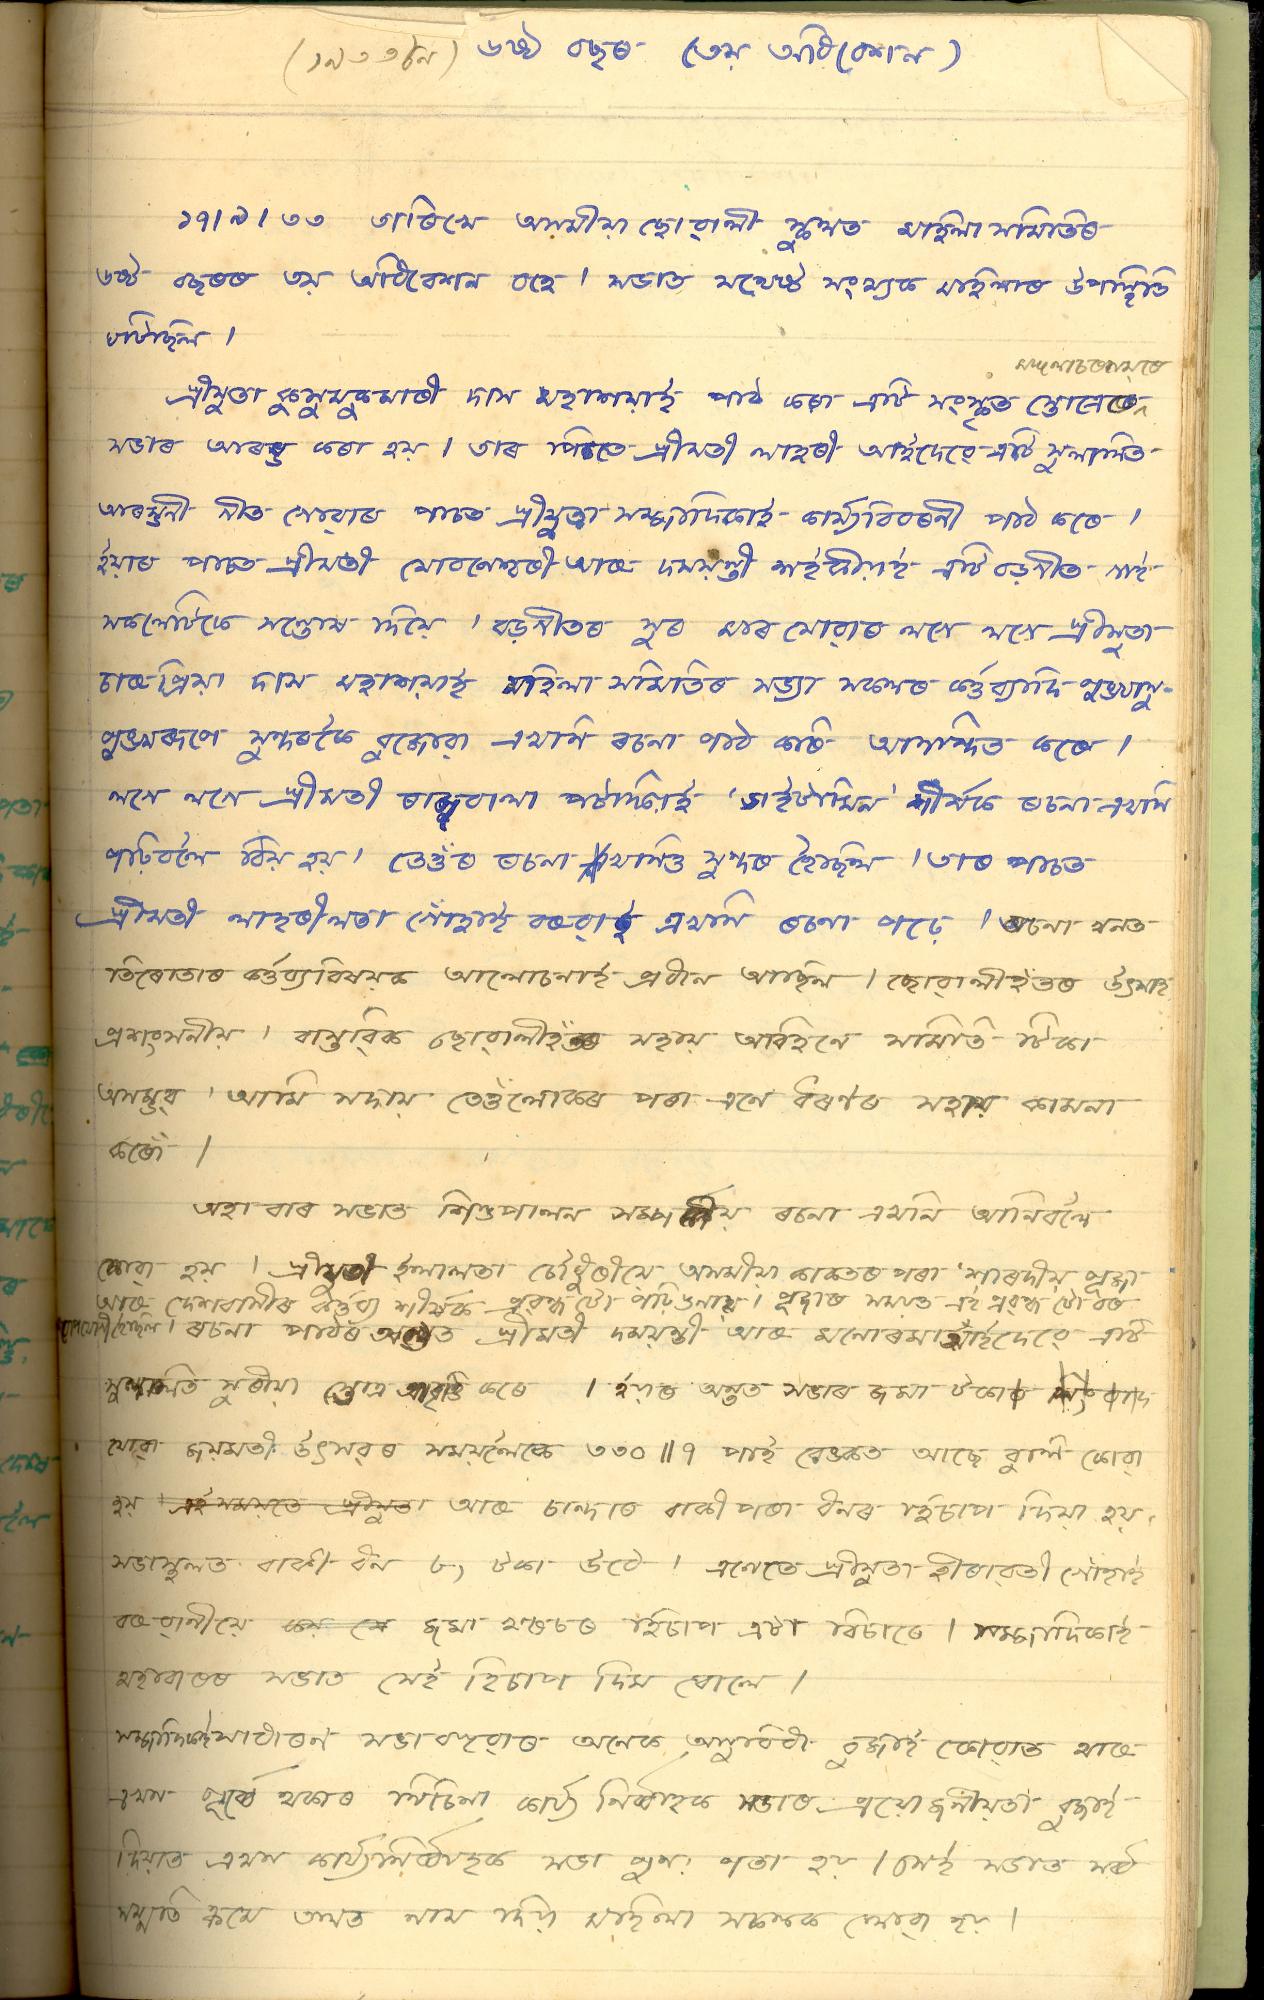 (১৯৩৩চন) ৬ষ্ঠ বছৰ (৩য় অধিবেশন)
১৭।৯।৩৩ তাৰিখে অসমীয়া ছোৱালী স্কুলত মহিলা সমিতিৰ
৬ষ্ঠ বছৰৰ ৩য় অধিবেশন বহে। সভাত যথেষ্ট সংখ্যক মহিলাৰ উপস্থিতি
ঘটিছিল।
শ্ৰীযুতা কুসুমকুমাৰী দাস মহাশয়াই পাঠ কৰা এটি সংস্কৃত স্তোত্ৰৰে
সভাৰ আৰম্ভ কৰা হয়। তাৰ পিচতে শ্ৰীমতী লাহৰী আইদেৱে এটি সুললিত
আৰম্ভনী গীত গোৱাৰ পাচত শ্ৰীযুতা সম্পাদিকাই কাৰ্য্যবিবৰনী পাঠ কৰে।
ইয়াৰ পাচত শ্ৰীমতী আৰু দময়ন্তী এটি বড়গীত গাই
সকলোটিকে সন্তোষ দিয়ে। বড়গীতৰ সুৰ মাৰ যোৱাৰ লগে লগে শ্ৰীযুতা
চাৰুপ্ৰিয়া দাস মহাশয়াই মহিলা সমিতিৰ সভ্যা সকলৰ কৰ্ত্তব্যাদি পুঙ্খানু-
পুঙ্খৰূপে সুন্দৰকৈ বুজোৱা এখনি ৰচনা পাঠ কৰি আনন্দিত কৰে।
লগে লগে শ্ৰীমতী ৰাজবালা পটাদিয়াই 'ভাইটামিন' শীৰ্ষক ৰচনা এখনি
পঢ়িবলৈ দিয়া হয়। তেওঁৰ ৰচনা এখনিও সুন্দৰ হৈছিল। তাৰ পাচত
শ্ৰীমতী লাহৰীলতা গোঁহাই বৰুৱাই এখনি ৰচনা পঢ়ে। ৰচনা খনত
তিৰোতাৰ কৰ্ত্তব্যবিষয়ক আলোচনাই প্ৰধান আছিল। ছোৱালীহঁতৰ উৎসাহ
প্ৰশংসনীয়। বাস্তৱিক ছোৱালীহঁতৰ সহায় অবিহনে সমিতি টিকা
অসম্ভৱ। আমি সদায় তেওঁলোকৰ পৰা এনে ধৰণৰ সহায় কামনা
কৰোঁ।
অহা বাৰ সভাত শিশুপালন সম্পৰ্কীয় ৰচনা এখনি আনিবলৈ
কোৱা হয়। শ্ৰীযুতা চৌধুৰীয়ে অসমীয়া কাকতৰ পৰা 'শাৰদীয় পূজা
আৰু দেশবাসীৰ কৰ্ত্তব্য শীৰ্ষক প্ৰবন্ধ টো পঢ়ি শুনায়। পূজাৰ সময়ত এই প্ৰবন্ধ টো বৰ
উপযোগী হৈছিল। ৰচনা পাঠৰ অন্তত শ্ৰীমতী দময়ন্তী আৰু মনোৰমা আইদেৱে এটি
সুললিত সুৰীয়া স্তোত্ৰ আবৃত্তি কৰে। ইয়াৰ অন্তত সভাৰ জমা টকাৰ
যোৱা জয়মতী উৎসৱৰ সময়লৈকে ৩৩০॥৭ পাই বেঙ্কত আছে বুলি কোৱা
হয়। এই সময়তে শ্ৰীযুতা আৰু চান্দাৰ বাকী পৰা ধনৰ হিচাপ দিয়া হয়।
সভাস্থলত বাকী ধন ৮৲ টকা উঠে। এনেতে শ্ৰীযুতা হীৰাবতী গোঁহাই
বৰুৱানীয়ে জমা খৰচৰ হিচাপ এটা বিচাৰে। সম্পাদিকাই
সভাত সেই হিচাপ দিম বোলে।
সম্পাদিকাই সাধাৰণ সভাবোৰৰ অনেক অসুবিধা বুজাই কোৱাত আৰু
এখন কাৰ্য্য নিৰ্ব্বাহক সভাৰ প্ৰয়োজনীয়তা বুজাই
দিয়াত এখন কাৰ্য্যনিৰ্ব্বাহক সভা পতা হয়। সেই সভাত সৰ্ব্ব
সন্মতি ক্ৰমে তলত নাম দিয়া মহিলা সকলক লোৱা হয়।